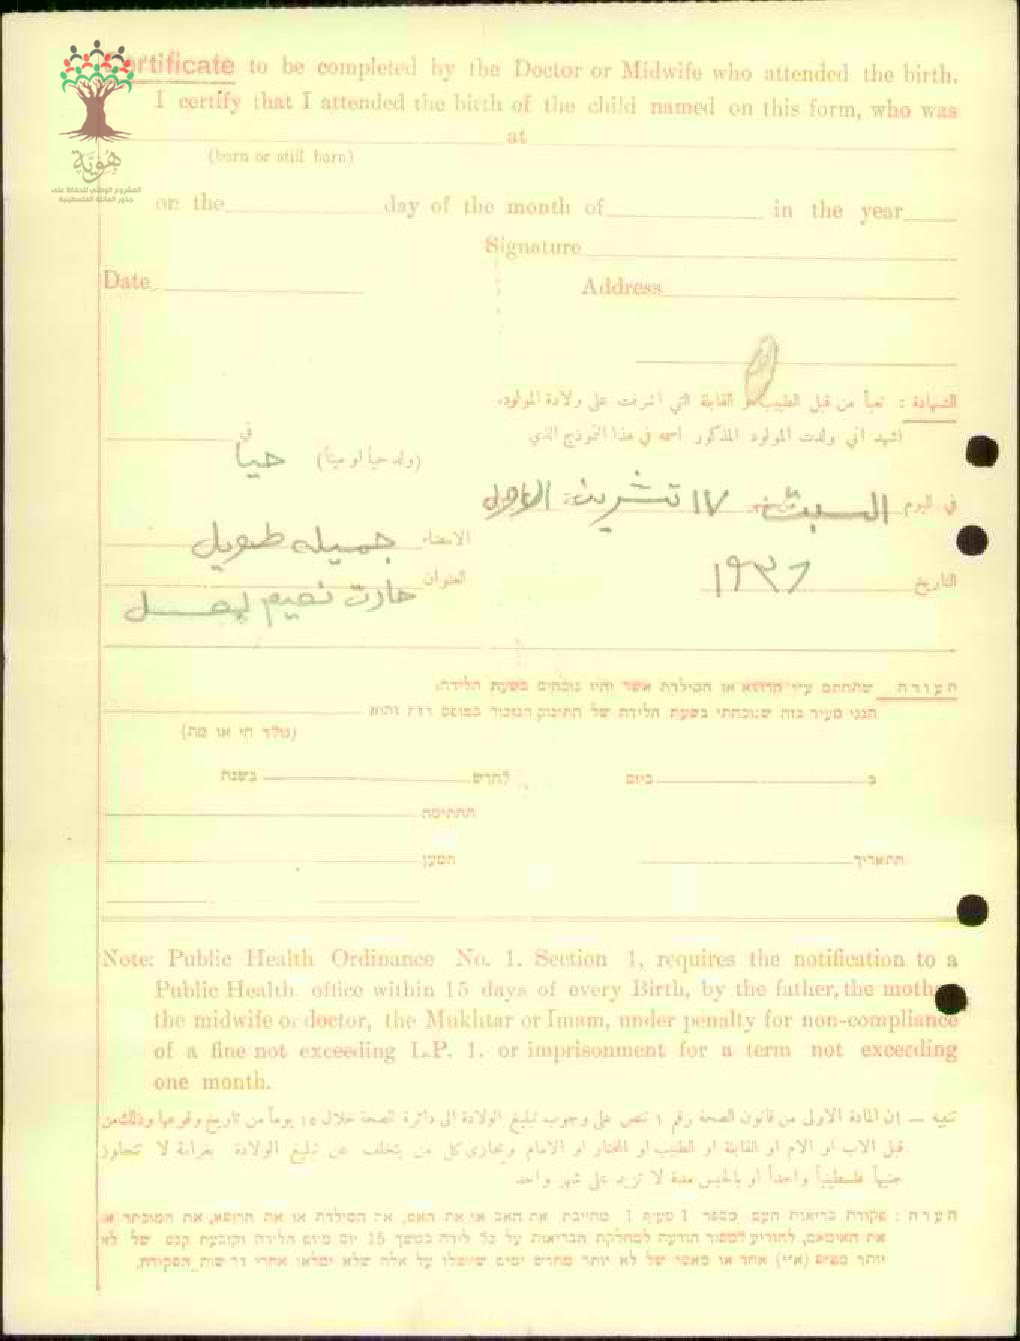 Certificate to be completed by the Doctor or Midwife who attended the birth.
I certify that I attended the birth of the child named on this form, who was
at
(born or still born)
هُويَّة
المشروع الوطني للحفاظ على
جذور العائلة الفلسطينية
on the day of the month of in the year
Signature
Date Address
الشهادة : تعبأ من قبل الطبيب او القابلة التي اشرفت على ولادة المولود.
اشهد اني ولدت المولود المذكور اسمه في هذا النموذج الذي
(ولد حياً او ميتاً) حيا في
في اليوم السبت ١٧ تشرين الاول
الامضاء جميله طويل
التاريخ
العنوان حارت نصيم
העודה שתחתם ע״י הרופא או המילדת אשר יהיו נוכחים בשעת הלידה:
הנני מעיד בזה שנוכחתי בשעת הלידה של התינוק הנזכור בטופס
(נולד חי או מת)
ב ביום לחדש בשנת
החתימה
התאריך המען
Note: Public Health Ordinance No. 1. Section 1, requires the notification to a
Public Health office within 15 days of every Birth, by the father, the mother
the midwife or doctor, the Mukhtar or Imam, under penalty for non-compliance
of a fine not exceeding L.P. 1. or imprisonment for a term not exceeding
one month.
تنبيه — إن المادة الاولى من قانون الصحة رقم ١ تنص على وجوب تبليغ الولادة الى دائرة الصحة خلال ١٥ يوماً من تاريخ وقوعها وذلك من
قبل الاب او الام او القابلة او الطبيب او المختار او الامام ويجازى كل من يتخلف عن تبليغ الولادة بغرامة لا تتجاوز
جنيهاً فلسطينياً واحداً او بالحبس مدة لا تزيد على شهر واحد
הערה : פקודת בריאות העם מספר 1 סעיף 1 מחייבת את האב או את האם, את המילדת או את הרופא, את המוכתר או
את האימאם, להודיע למחלקת הבריאות על כל לידה במשך 15 יום מיום הלידה וקובעת קנס של לא
יותר